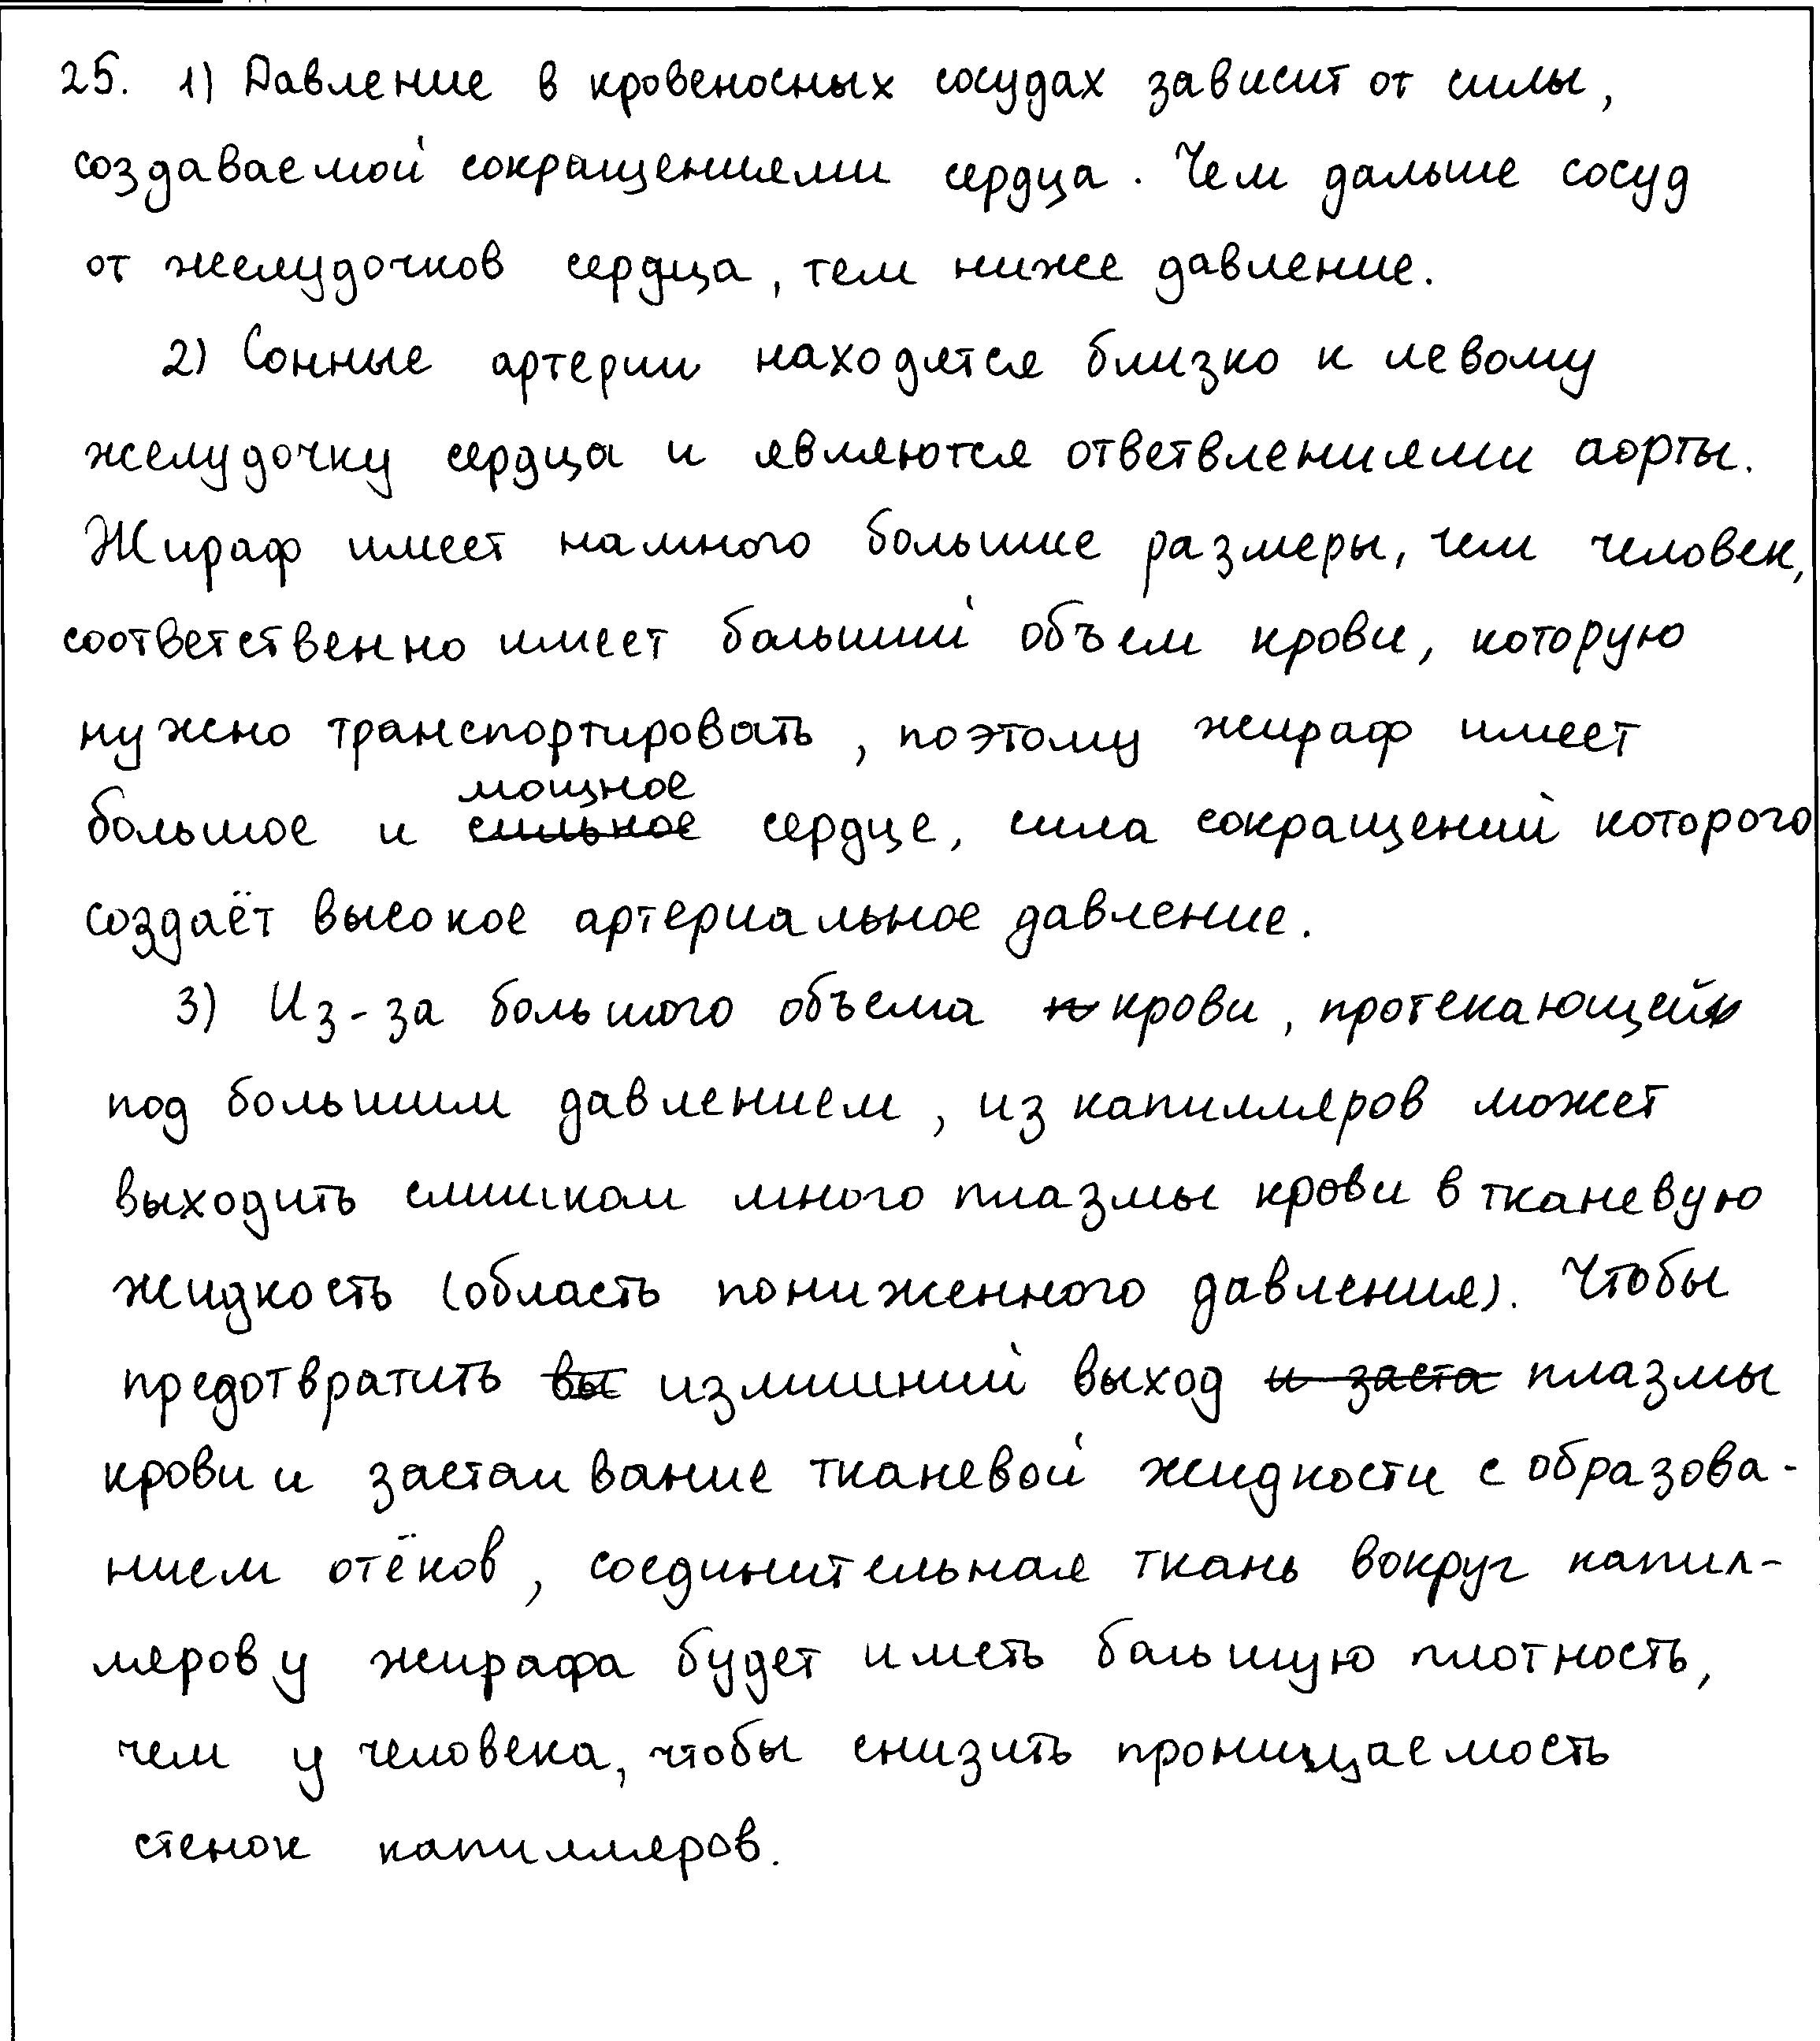 25. 1) Давление в кровеносных сосудах зависит от силы,
создаваемой сокращениями сердца. Чем дальше сосуд
от желудочков сердца, тем ниже давление.
2) Сонные артерии находятся близко к левому
желудочку сердца и являются ответвлениями аорты.
Жираф имеет намного большие размеры, чем человек,
соответственно имеет больший объем крови, которую
нужно транспортировать, поэтому жираф имеет
мощное
большое и сильное сердце, сила сокращений которого
создаёт высокое артериальное давление.
3) Из-за большого объема п крови, протекающей
под большим давлением, из капилляров может
выходить слишком много плазмы крови в тканевую
жидкость (область пониженного давления). Чтобы
предотвратить вы излишний выход и заста плазмы
крови и застаивание тканевой жидкости с образова-
нием отёков, соединительная ткань вокруг капил-
ляров у жирафа будет иметь большую плотность,
чем у человека, чтобы снизить проницаемость
стенок капилляров.